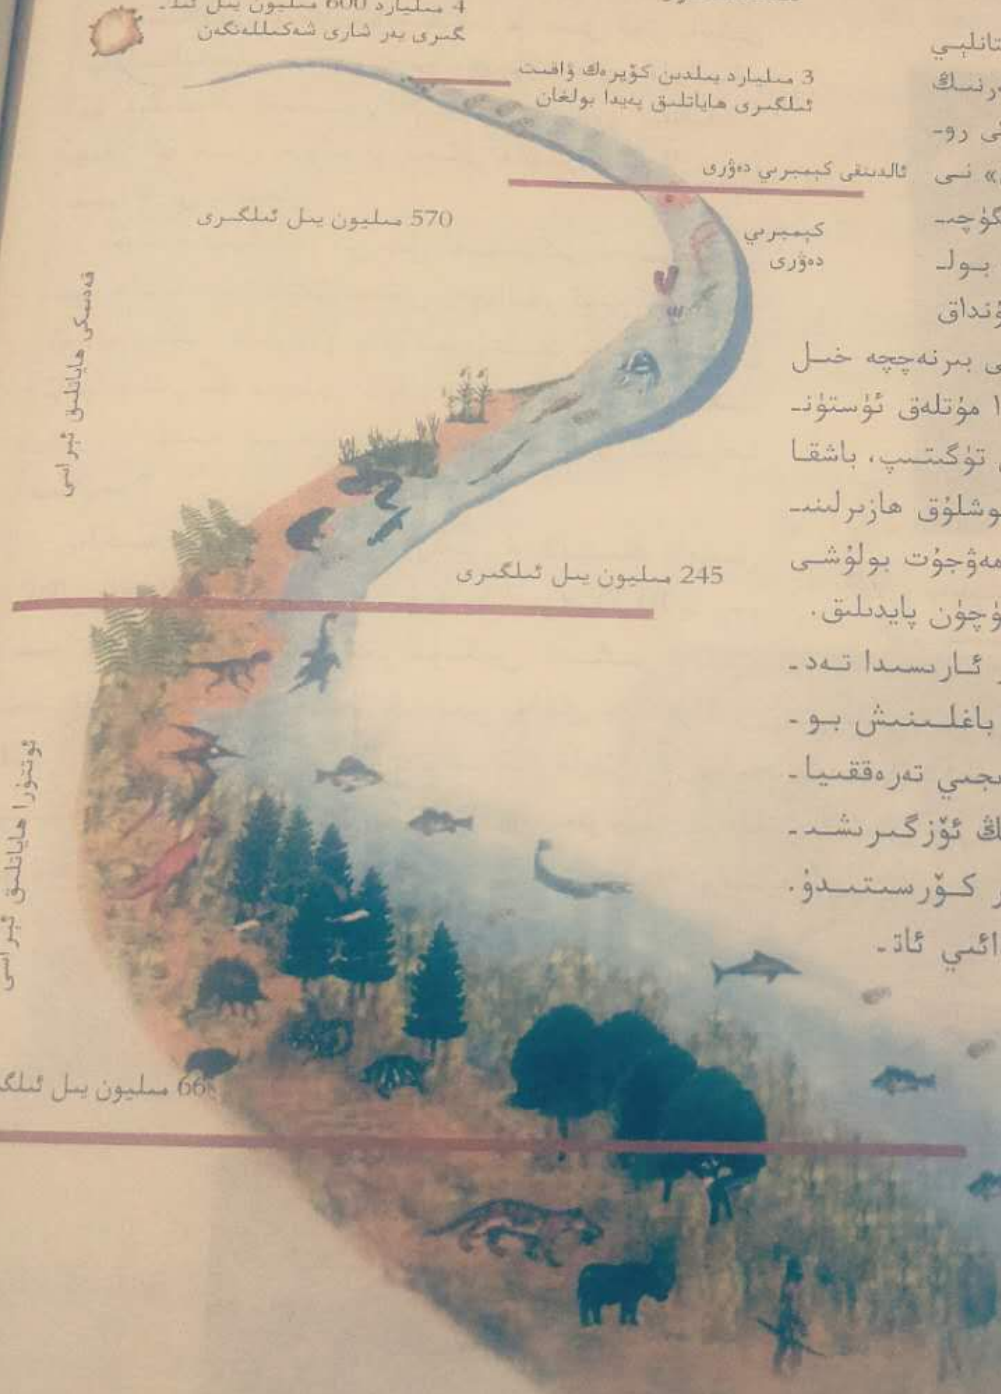 4 مىليارد 600 مىليون يىل ئىلـ
گىرى يەر شارى شەكىللەنگەن
3 مىليارد يىلدىن كۆپرەك ۋاقىت
ئىلگىرى ھاياتلىق پەيدا بولغان
ئالدىنقى كېمبرىي دەۋرى
570 مىليون يىل ئىلگىرى
كېمبرىي
دەۋرى
قەدىمكى ھاياتلىق ئېراسى
245 مىليون يىل ئىلگىرى
ئوتتۇرا ھاياتلىق ئېراسى
66 مىليون يىل ئىلگ
تانلىي
رنىڭ
ى روـ
» نى
گۈچىـ
بولـ
ۇنداق
ى بىرنەچچە خىل
1 مۇتلەق ئۈستۈنـ
تۈگىتىپ، باشقا
وشلۇق ھازىرلىنىـ
مەۋجۇت بولۇشى
ۈچۈن پايدىلىق.
ئارىسىدا تەدـ
باغلىنىش بوـ
ىجىي تەرەققىياـ
ڭ ئۆزگىرىشىدـ
ر كۆرسىتىدۇ.
دائىي ئاتـ